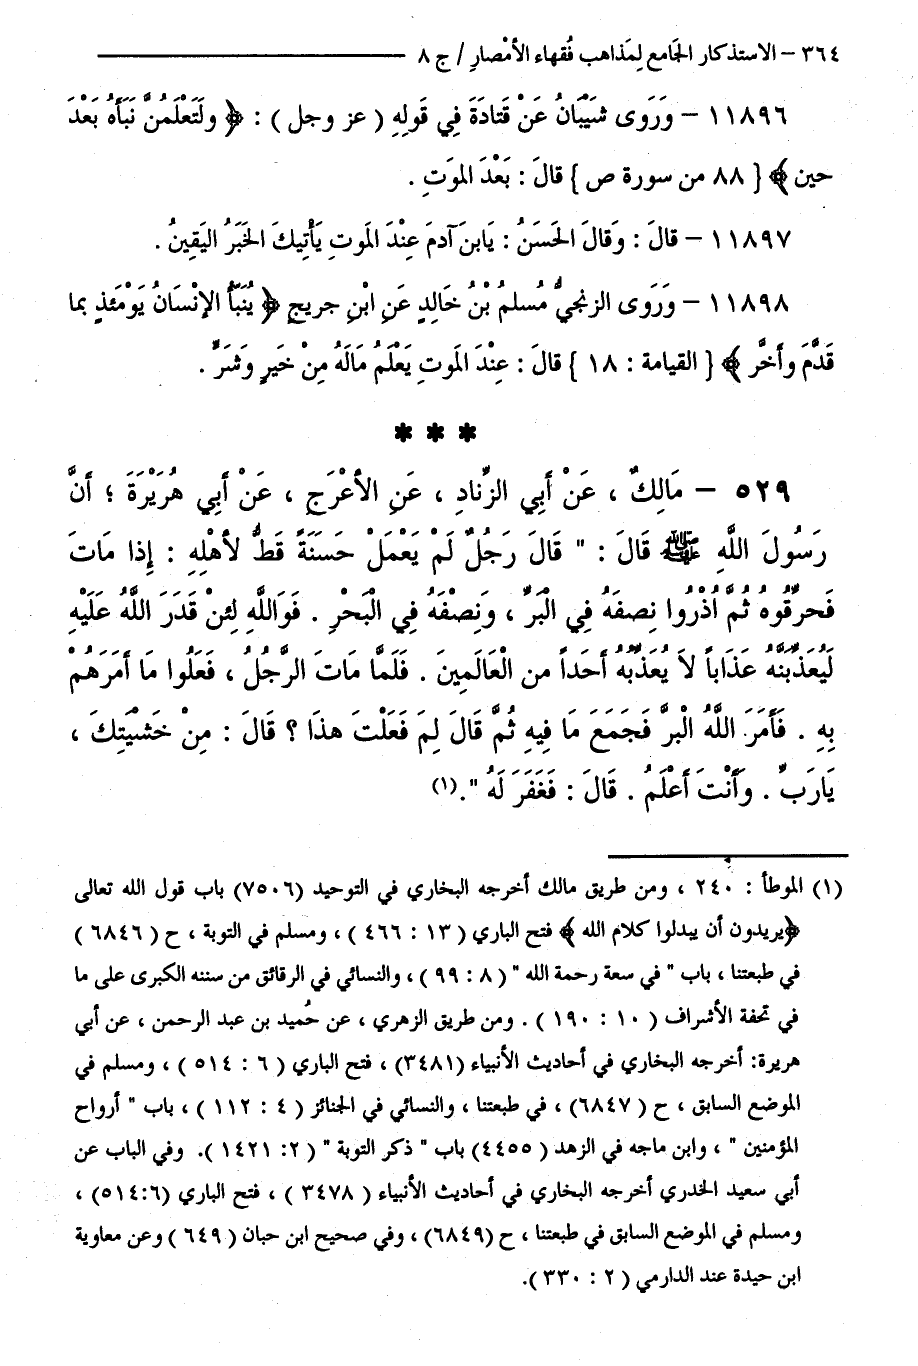 ٣٦٤ – الاستذكار الجَامع لِمَذاهب فُقهاء الأمْصارِ / ج ٨
١١٨٩٦ – وَرَوى شَيْبَانُ عَنْ قَتادَةَ فِي قَولِهِ ( عز وجل ) : ﴿ ولَتَعْلَمُنَّ نَبَأَهُ بَعْدَ
حين ﴾ [ ٨٨ من سورة ص ] قالَ : بَعْدَ المَوَتِ .
١١٨٩٧ – قالَ : وَقالَ الحَسَنُ : يَابنَ آدمَ عِنْدَ المَوتِ يَأْتيكَ الخَبَرُ اليَقِينُ .
١١٨٩٨ – وَرَوى الزنجيُّ مُسلمُ بْنُ خَالِدٍ عَنِ ابْنِ جريجٍ ﴿ يُنَبَّأُ الإنْسَانُ يَوْمَئذٍ بما
قَدَّمَ وأخَّر ﴾ [ القيامة : ١٨ ] قالَ : عِنْدَ المَوتِ يَعْلَمُ مَالَهُ مِنْ خَيرٍ وَشَرٍّ .
* * *
٥٢٩ – مَالِكٌ ، عَنْ أبي الزِّنادِ ، عَنِ الأعْرَجِ ، عَنْ أبي هُرَيْرَةَ ؛ أنَّ
رَسُولَ اللَّهِ ﷺ قَالَ : " قَالَ رَجُلٌ لَمْ يَعْمَلْ حَسَنَةً قَطُّ لأهْلِهِ : إِذا مَاتَ
فَحرِّقُوهُ ثُمَّ اُذْرُوا نِصفَهُ فِي الْبَرِّ ، وَنِصْفَهُ فِي الْبَحْرِ . فَوَاللَّهِ لئِنْ قَدَرَ اللَّهُ عَلَيْهِ
لَيُعَذِّبَنَّهُ عَذَاباً لاَ يُعَذِّبُهُ أحَداً من الْعَالَمِينَ . فَلَمَّا مَاتَ الرَّجُلُ ، فَعَلُوا مَا أمَرَهُمْ
بِهِ . فَأَمَرَ اللَّهُ الْبرَّ فَجَمَعَ مَا فِيهِ ثُمَّ قَالَ لِمَ فَعَلْتَ هذَا ؟ قَالَ : مِنْ خَشْيَتِكَ ،
يَارَبِّ . وَأَنْتَ أعْلَمُ . قَالَ : فَغَفَرَ لَهُ ".(١)
(١) الموطأ : ٢٤٠ ، ومن طريق مالك أخرجه البخاري في التوحيد (٧٥٠٦) باب قول الله تعالى
﴿يريدون أن يبدلوا كلام الله ﴾ فتح الباري ( ١٣ : ٤٦٦ ) ، ومسلم في التوبة ، ح ( ٦٨٤٦ )
في طبعتنا ، باب " في سعة رحمة الله " ( ٨ : ٩٩ ) ، والنسائي في الرقائق من سننه الكبرى على ما
في تحفة الأشراف ( ١٠ : ١٩٠ ) . ومن طريق الزهري ، عن حُميد بن عبد الرحمن ، عن أبي
هريرة: أخرجه البخاري في أحاديث الأنبياء (٣٤٨١) ، فتح الباري ( ٦ : ٥١٤ ) ، ومسلم في
الموضع السابق ، ح ( ٦٨٤٧) ، في طبعتنا ، والنسائي في الجنائز ( ٤ : ١١٢ ) ، باب " أرواح
المؤمنين " ، وابن ماجه في الزهد ( ٤٤٥٥) باب " ذكر التوبة " ( ٢: ١٤٢١ ). وفي الباب عن
أبي سعيد الخدري أخرجه البخاري في أحاديث الأنبياء ( ٣٤٧٨ ) ، فتح الباري (٥١٤:٦) ،
ومسلم في الموضع السابق في طبعتنا ، ح (٦٨٤٩) ، وفي صحيح ابن حبان ( ٦٤٩ ) وعن معاوية
ابن حيدة عند الدارمي ( ٢ : ٣٣٠ ).